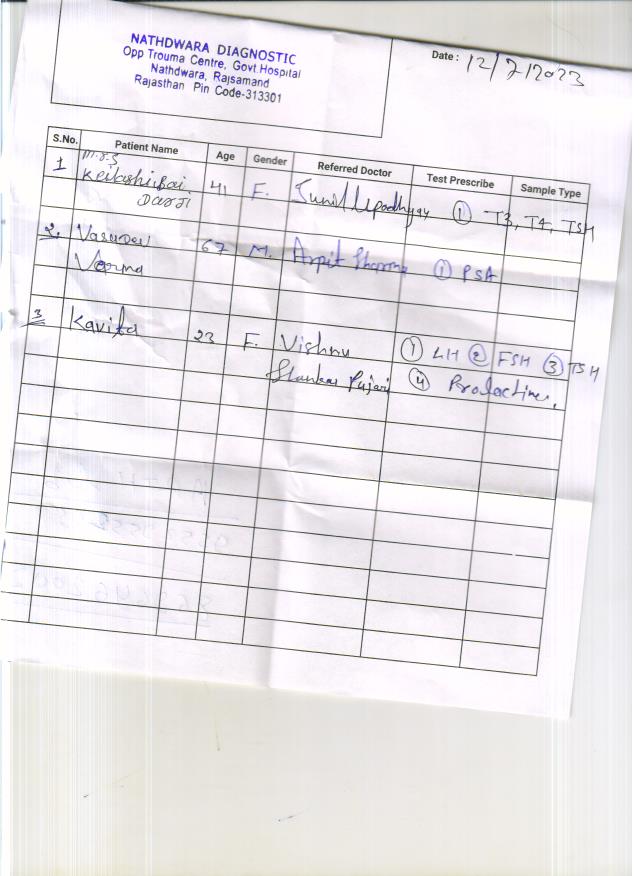 NATHDWARA DIAGNOSTIC
Opp Trouma Centre, Govt.Hospital
Nathdwara, Rajsamand
Rajasthan Pin Code-313301
Date : 12/7/2023
S.No. Patient Name Age Gender Referred Doctor Test Prescribe Sample Type
1 41 F. Sunil Upadhyay ① T3, T4, TSH
Darji
2. Vasudev 67 M. Arpit Sharma ① PSA
Verma
3 Kavita 23 F. Vishnu ① LH ② FSH ③ TSH
Shankar Pujari ④ Prolactine.